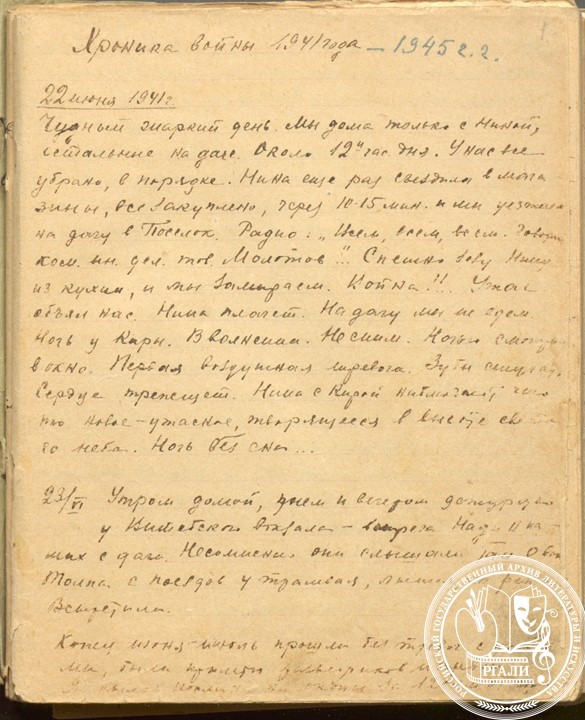 1.
Хроника войны 1941 года – 1945 г.г.
22 июня 1941 г.
Чудный жаркий день. Мы дома только с Ниной,
остальные на даче. Около 12 ч час дня. У нас все
убрано, в порядке. Нина еще раз сходила в мага
зины, все закуплено, через 10-15 мин. и мы уезжаем
на дачу в Поселок. Радио: „Всем, всем, всем. Говорит
ком. ин. дел. тов Молотов"!! Спешно зову Нину
из кухни, и мы замираем. Война!!. Ужас
объял нас. Нина плачет. На дачу мы не едем.
Ночь у Киры. В волнении. Не спим. Ночью смотрим
в окно. Первая воздушная тревога. Зубы стучат,
Сердце трепещет. Нина с Кирой
что новое – ужасное, творящееся в высоте светло
го неба. Ночь без сна...
23/VI Утром домой, днем и вечером
у Витебского вокзала – встреча Нади и на
ших с дачи. Несомненно они слышали там о
Толпа с поездов у трамвая,
Встретили.
Конец июня-июль прошли без тревог с
мы, были
РОССИЙСКИЙ ГОСУДАРСТВЕННЫЙ АРХИВ ЛИТЕРАТУРЫ И ИСКУССТВА
РГАЛИ